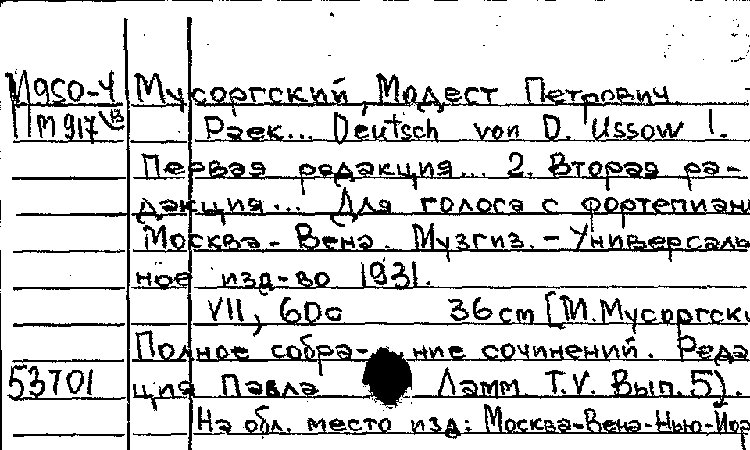 М950-У Мусоргский, Модест Петрович.
М917 Раек... Deutsch von D. Ussow 1.
Первая редакция... 2. Вторая ре-
дакция... Для голоса с фортепиан
Москва-Вена. Музгиз.-Универсаль
ное изд-во 1931.
VII, 60с 36cm [М.Мусоргски
Полное собра- ние сочинений. Реда
53701 ция Павла Ламм. Т.V. Вып.5).
На обл. место изд: Москва-Вена-Нью-Йор